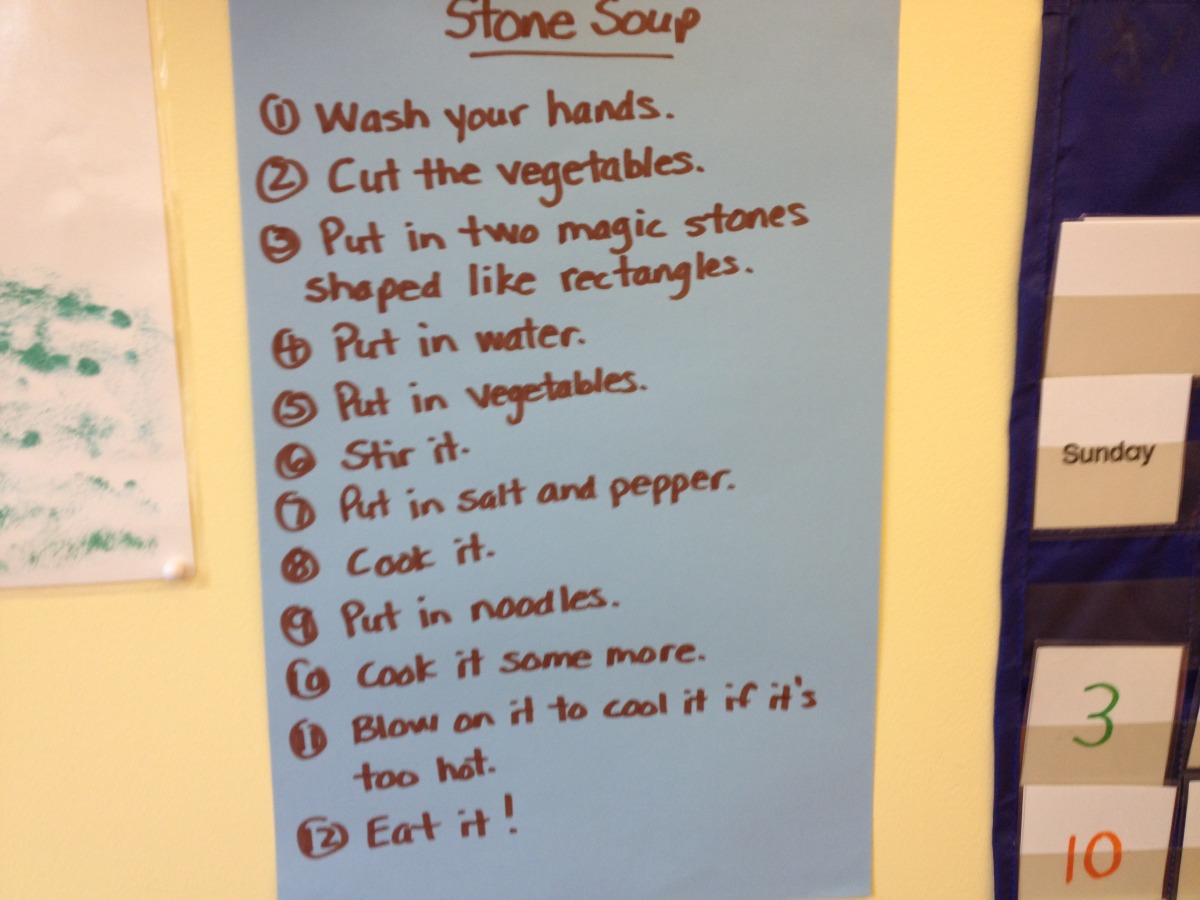 Stone Soup
① Wash your hands.
② Cut the vegetables.
③ Put in two magic stones
shaped like rectangles.
④ Put in water.
⑤ Put in vegetables.
⑥ Stir it.
⑦ Put in salt and pepper.
⑧ Cook it.
⑨ Put in noodles.
⑩ Cook it some more.
⑪ Blow on it to cool it if it's
too hot.
⑫ Eat it!
Sunday
3
10